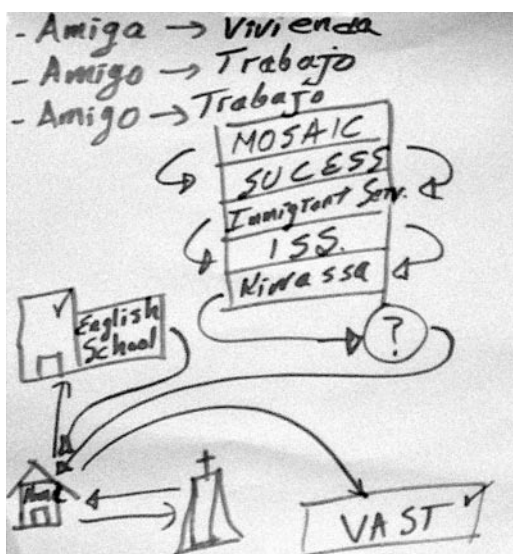 - Amiga → Vivienda
- Amigo → Trabajo
- Amigo → Trabajo
MOSAIC
SUCESS
Immigrant Serv.
ISS.
Kiwassa
English
School
?
Home
VAST